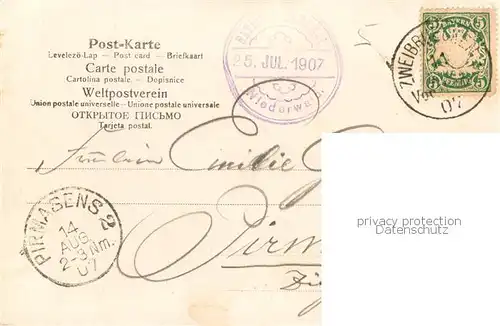 Post-Karte
Levelező-Lap — Post card — Briefkaart
Carte postale
Cartolina postale – Dopisnice
Weltpostverein
Union postale universelle – Unione postale universale
ОТКРЫТОЕ ПИСЬМО
Tarjeta postal.
25. JUL. 1907
Niederwald
BAYERN
5 5
ZWEIBR
Vor
07
Fräulein Emilie
privacy protection
Datenschutz
PIRMASENS 2
14
AUG
2-3 Nm.
07
Pirm